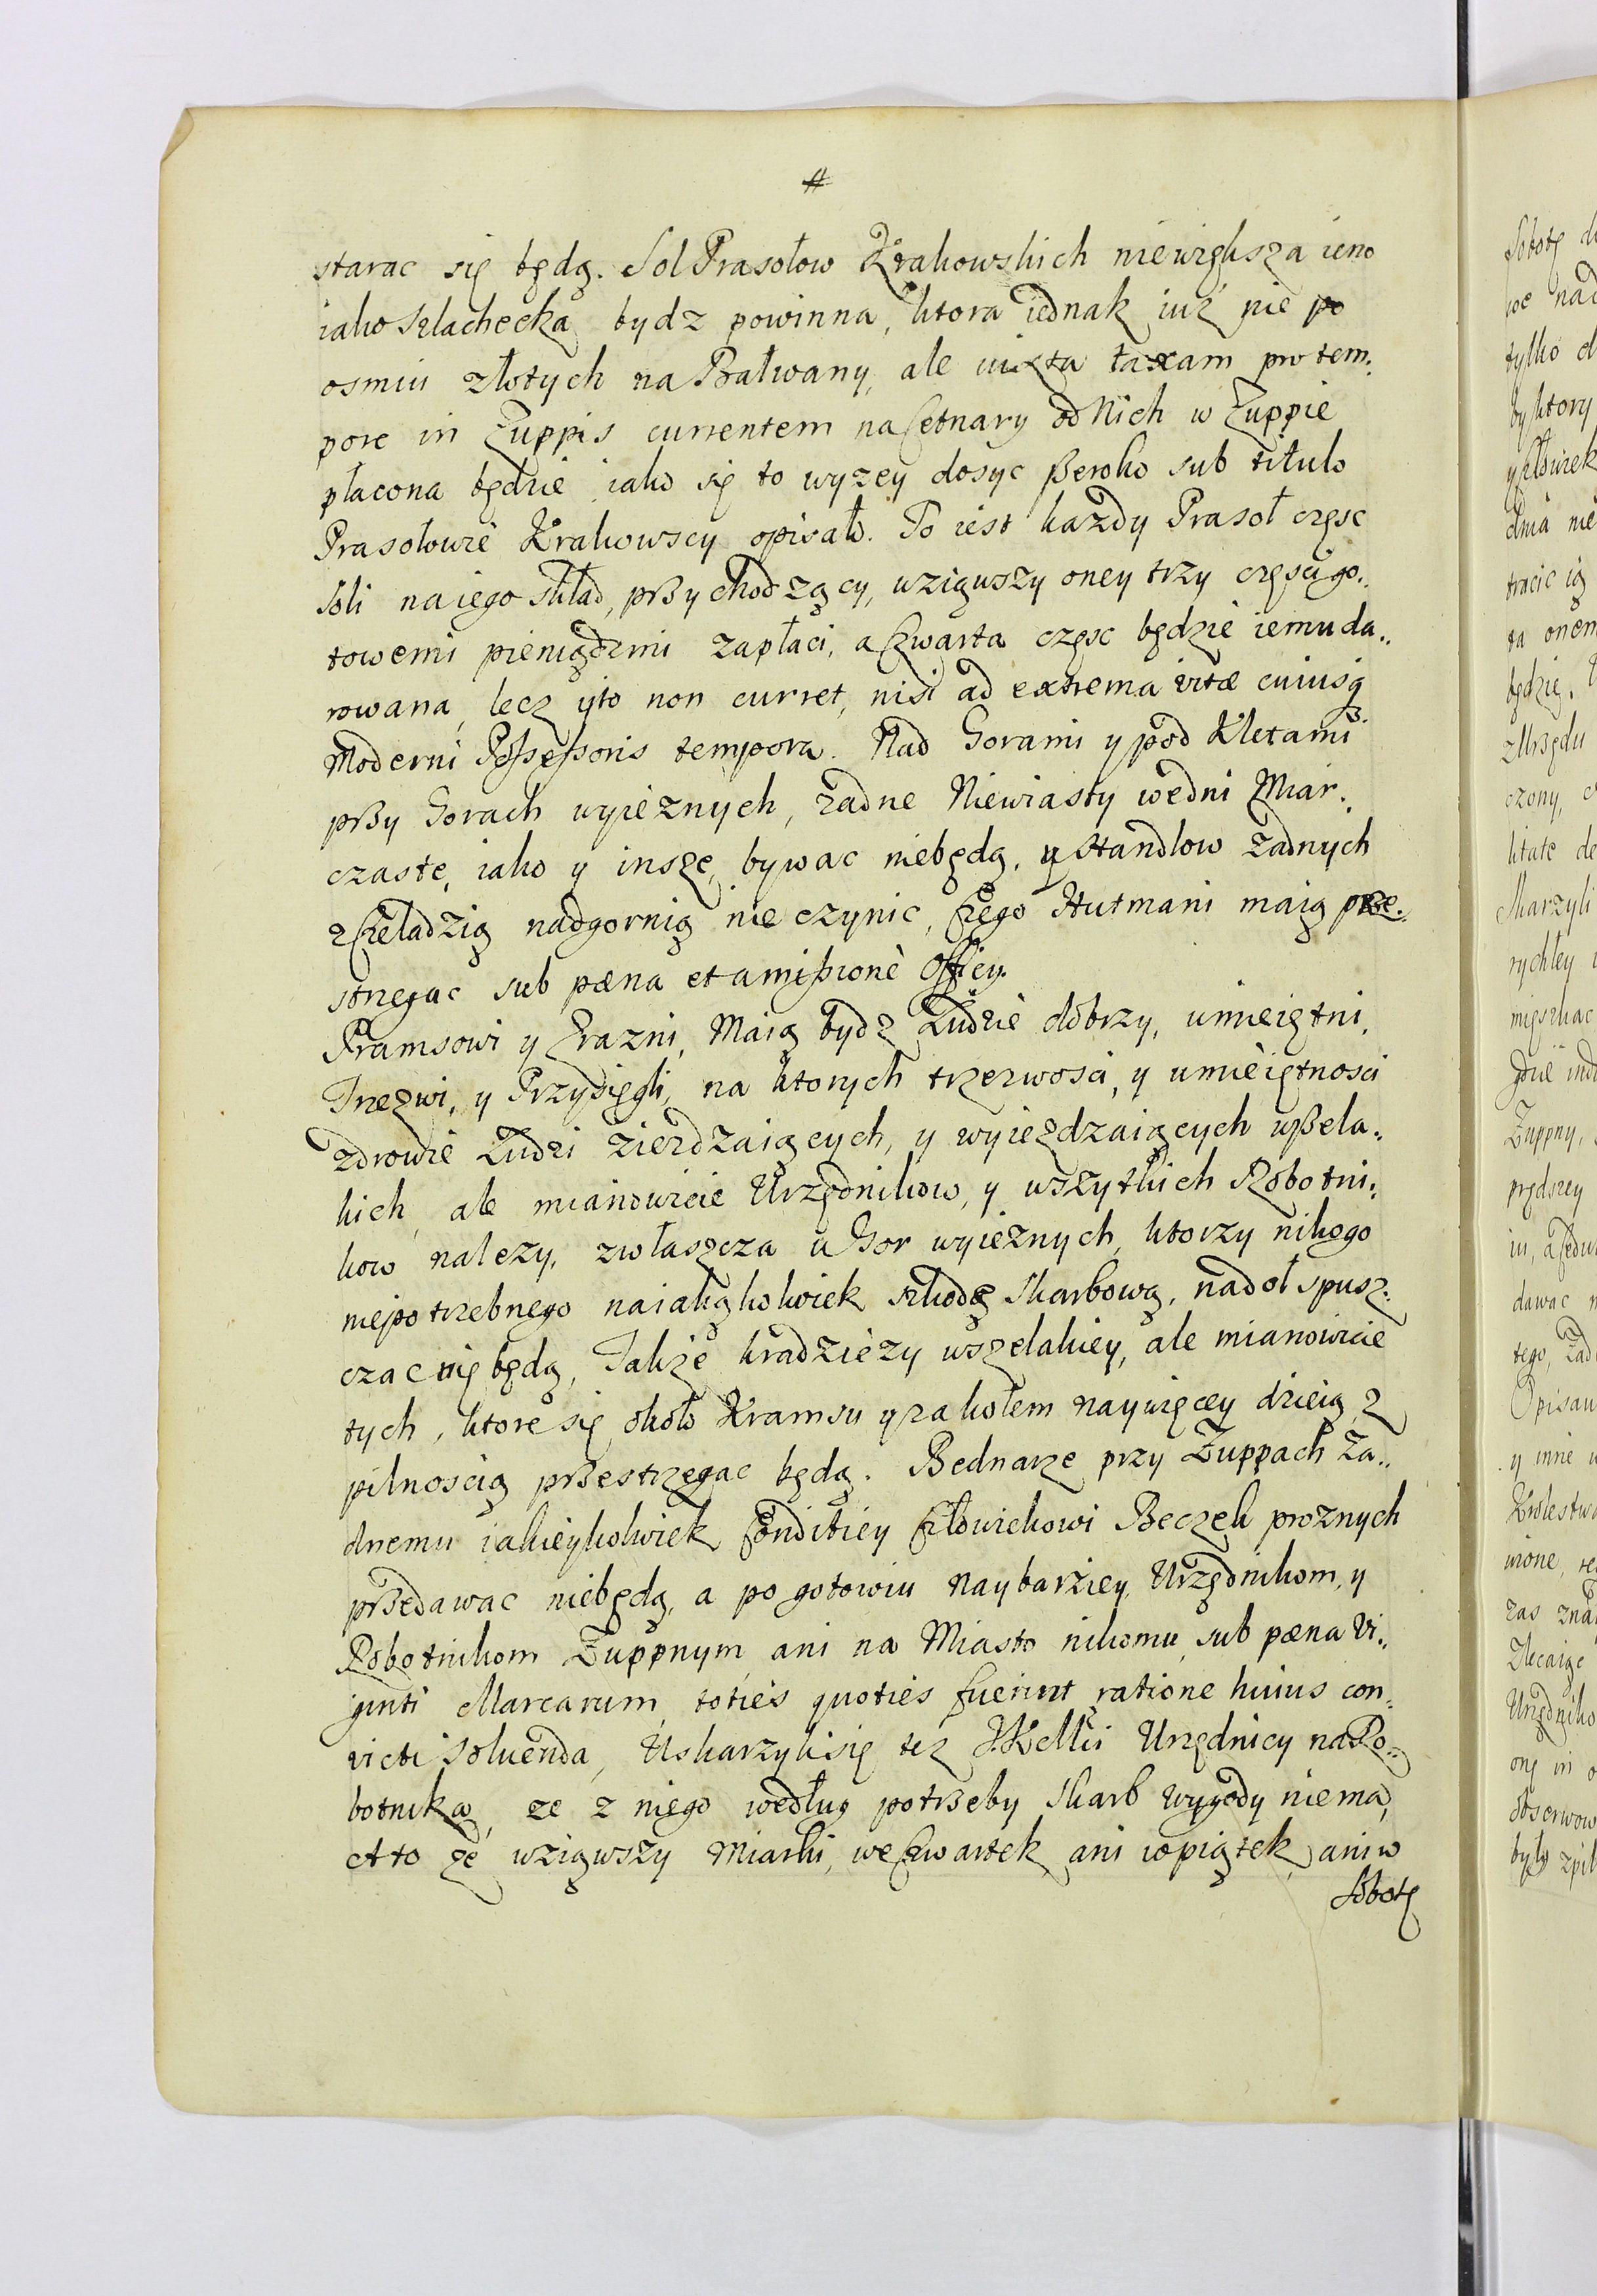 #
starac się będą. Sol Prasołow Krakowskich niewiększa ieno
iako szlachecka bydz powinna, ktora iednak iuż nie po
osmiu złotych na Bałwany, ale iuxta taxam pro tem:
pore in Zuppis currentem na Cetnary od Nich w Zuppie
płacona będzie iako się to wyzey dosyc szeroko sub titulo
Prasołowie Krakowscy opisało. To iest kazdy Prasoł częsc
Soli na iego skład, przychodzący, wziąwszy oney trzy częsci go:
towemi pieniądzmi zapłaci, a Czwarta częsc będzie iemu da:
rowana, lecz yto non curret, nisi ad extrema vitæ cuiusq
Moderni Possessoris tempora. Nad Gorami y pod Kletami
przy Gorach wyieznych, żadne Niewiasty wedni Miar:
czaste, iako y insze, bywac niebędą, y Standlow żadnych
z Czeladzią nadgornią nie czynic, Czego Hutmani maią prze:
strzegac sub pæna et amissione Officy.
Kramsowi y Zrazni, Maią bydz Ludzie dobrzy, umieiętni,
Trzezwi, y Przysięgli, na ktorych trzezwosci, y umieiętnosci
zdrowie Ludzi ziezdzaiących, y wyiezdzaiących wszela:
kich, ale mianowicie Urzędnikow, y wszytkich Robotni:
kow nalezy, zwłaszcza u Gor wyieznych, ktorzy nikogo
niepotrzebnego naiakąkolwiek szkodę Skarbową, nadoł spusz:
czac nie będą, Także kradziezy wszelakiey, ale mianowicie
tych, ktore się około Kramsu y za kołem naywięcey dzieią, z
pilnoscią przestrzegac będą. Bednarze przy Zuppach Za:
dnemu iakieykolwiek Conditiey Człowiekowi Beczek proznych
przedawac niebędą, a pogotowiu naybarziey, Urzędnikom, y
Robotnikom Zuppnym, ani na Miasto nikomu, sub pæna Vi:
ginti Marcarum, toties quoties fuerint ratione huius con:
victi Soluenda, Uskarzyli się tez Urzędnicy na Ro:
botnika, ze z niego według potrzeby Skarb wygody niema,
A to że wziąwszy Miarki, we Czwartek, ani wpiątek, ani w
Sobotę